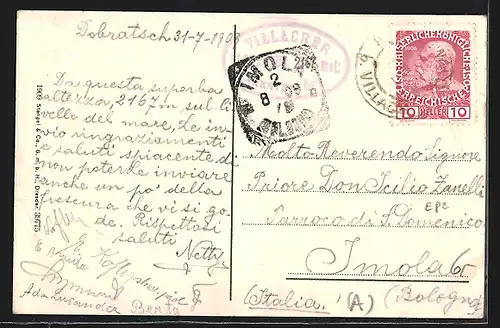 Dobratsch 31-7-1908
Da questa superba
altezza, 2167 m sul li-
vello del mare, Le in-
vio ringraziamenti
e saluti spiacente di
non poterle inviare
anche un po' della
frescura che vi si go-
de. Rispettosi
saluti
Netty
Berta
1909 Stengel & Co., G. m. b. H., Dresden
VILLACHER
IMOLA
2 8 08
BOLOGNA
KAISERLICHE KÖNIGLICHE
ÖSTERREICHISCHE POST
1908
10 HELLER 10
VILLACH
Molto Reverendo Signore
Priore Don Icilio Zanelli
Parroco di S. Domenico
Imola
Italia. (A) (Bologna